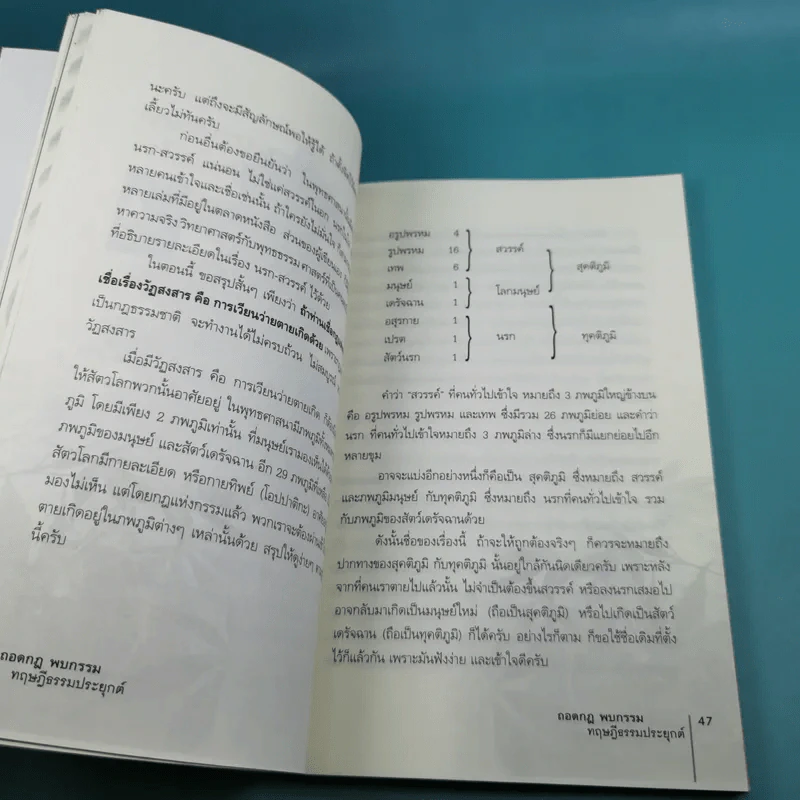 นะครับ แต่ถึงจะมีสัญลักษณ์พอให้รู้ได้
เลี้ยวไม่ทันครับ
ก่อนอื่นต้องขอยืนยันว่า ในพุทธศาสนา
นรก-สวรรค์ แน่นอน ไม่ใช่แค่สวรรค์ในอก
หลายคนเข้าใจและเชื่อเช่นนั้น ถ้าใครยังไม่มั่นใจ
หลายเล่มที่มีอยู่ในตลาดหนังสือ ส่วนของผู้เขียนเอง
หาความจริง วิทยาศาสตร์กับพุทธธรรม
ที่อธิบายรายละเอียดในเรื่อง นรก-สวรรค์ ไว้ด้วย
ในตอนนี้ ขอสรุปสั้นๆ เพียงว่า
เชื่อเรื่องวัฏสงสาร คือ การเวียนว่ายตายเกิดด้วย
เป็นกฎธรรมชาติ จะทำงานได้ไม่ครบถ้วน ไม่สมบูรณ์
วัฏสงสาร
เมื่อมีวัฏสงสาร คือ การเวียนว่ายตายเกิด
ให้สัตว์โลกพวกนั้นอาศัยอยู่ ในพุทธศาสนามีภพภูมิ
ภูมิ โดยมีเพียง 2 ภพภูมิเท่านั้น ที่มนุษย์เรามองเห็นได้
ภพภูมิของมนุษย์ และสัตว์เดรัจฉาน อีก 29 ภพภูมิที่เหลือ
สัตว์โลกมีกายละเอียด หรือกายทิพย์ (โอปปาติกะ)
มองไม่เห็น แต่โดยกฎแห่งกรรมแล้ว พวกเราจะต้อง
ตายเกิดอยู่ในภพภูมิต่างๆ เหล่านั้นด้วย สรุปให้ดูง่ายๆ
นี้ครับ
ถอดกฎ พบกรรม
ทฤษฎีธรรมประยุกต์
อรูปพรหม 4
รูปพรหม 16 สวรรค์
เทพ 6 สุคติภูมิ
มนุษย์ 1
เดรัจฉาน 1 โลกมนุษย์
อสุรกาย 1
เปรต 1 นรก ทุคติภูมิ
สัตว์นรก 1
คำว่า “สวรรค์” ที่คนทั่วไปเข้าใจ หมายถึง 3 ภพภูมิใหญ่ข้างบน
คือ อรูปพรหม รูปพรหม และเทพ ซึ่งมีรวม 26 ภพภูมิย่อย และคำว่า
นรก ที่คนทั่วไปเข้าใจหมายถึง 3 ภพภูมิล่าง ซึ่งนรกก็มีแยกย่อยไปอีก
หลายขุม
อาจจะแบ่งอีกอย่างหนึ่งก็คือเป็น สุคติภูมิ ซึ่งหมายถึง สวรรค์
และภพภูมิมนุษย์ กับทุคติภูมิ ซึ่งหมายถึง นรกที่คนทั่วไปเข้าใจ รวม
กับภพภูมิของสัตว์เดรัจฉานด้วย
ดังนั้นชื่อของเรื่องนี้ ถ้าจะให้ถูกต้องจริงๆ ก็ควรจะหมายถึง
ปากทางของสุคติภูมิ กับทุคติภูมิ นั้นอยู่ใกล้กันนิดเดียวครับ เพราะหลัง
จากที่คนเราตายไปแล้วนั้น ไม่จำเป็นต้องขึ้นสวรรค์ หรือลงนรกเสมอไป
อาจกลับมาเกิดเป็นมนุษย์ใหม่ (ถือเป็นสุคติภูมิ) หรือไปเกิดเป็นสัตว์
เดรัจฉาน (ถือเป็นทุคติภูมิ) ก็ได้ครับ อย่างไรก็ตาม ก็ขอใช้ชื่อเดิมที่ตั้ง
ไว้ก็แล้วกัน เพราะมันฟังง่าย และเข้าใจดีครับ
ถอดกฎ พบกรรม
ทฤษฎีธรรมประยุกต์ 47